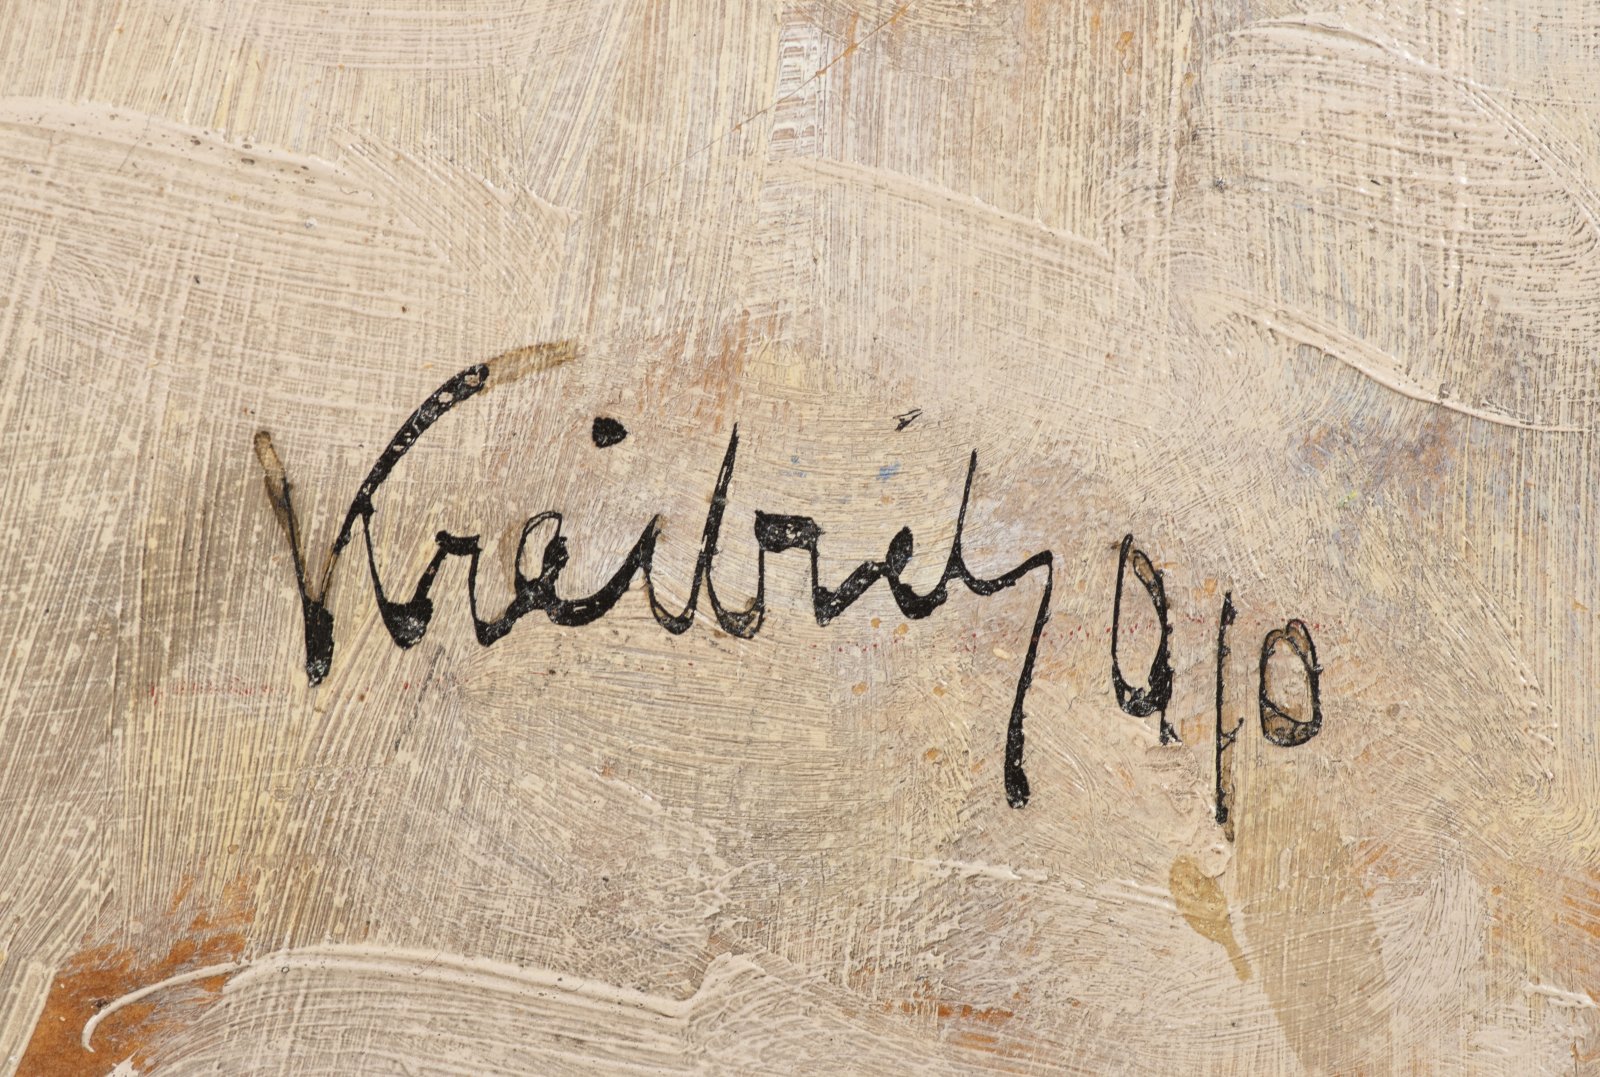 Kreibich 910